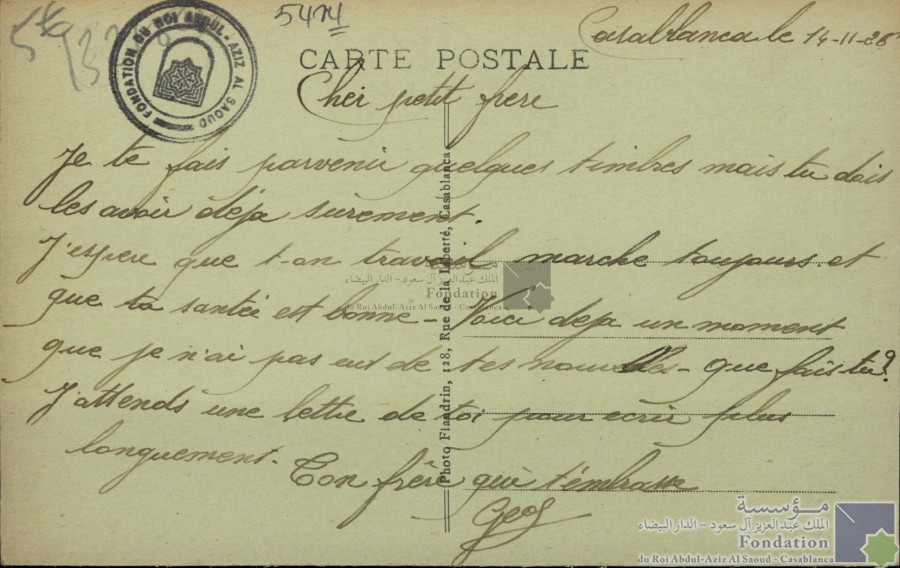 5474
FONDATION DU ROI ABDUL-AZIZ AL SAOUD
Casablanca le 14-11-28
CARTE POSTALE
Cher petit frere
Je te fais parvenir quelques timbres mais tu dois
les avoir déja surement.
J'espere que t-on travail marche toujours et
que ta santée est bonne - Voici deja un moment
que je n'ai pas eut de tes nouvelles - Que fais-tu?
J'attends une lettre de toi pour ecrire plus
longuement.
Ton frère qui t'embrasse
Geo
Photo Flandrin, 128, Rue de la Liberté, Casablanca
مؤسسة
الملك عبدالعزيز آل سعود - الدار البيضاء
Fondation
du Roi Abdul-Aziz Al Saoud - Casablanca
مؤسسة
الملك عبدالعزيز آل سعود - الدار البيضاء
Fondation
du Roi Abdul-Aziz Al Saoud - Casablanca